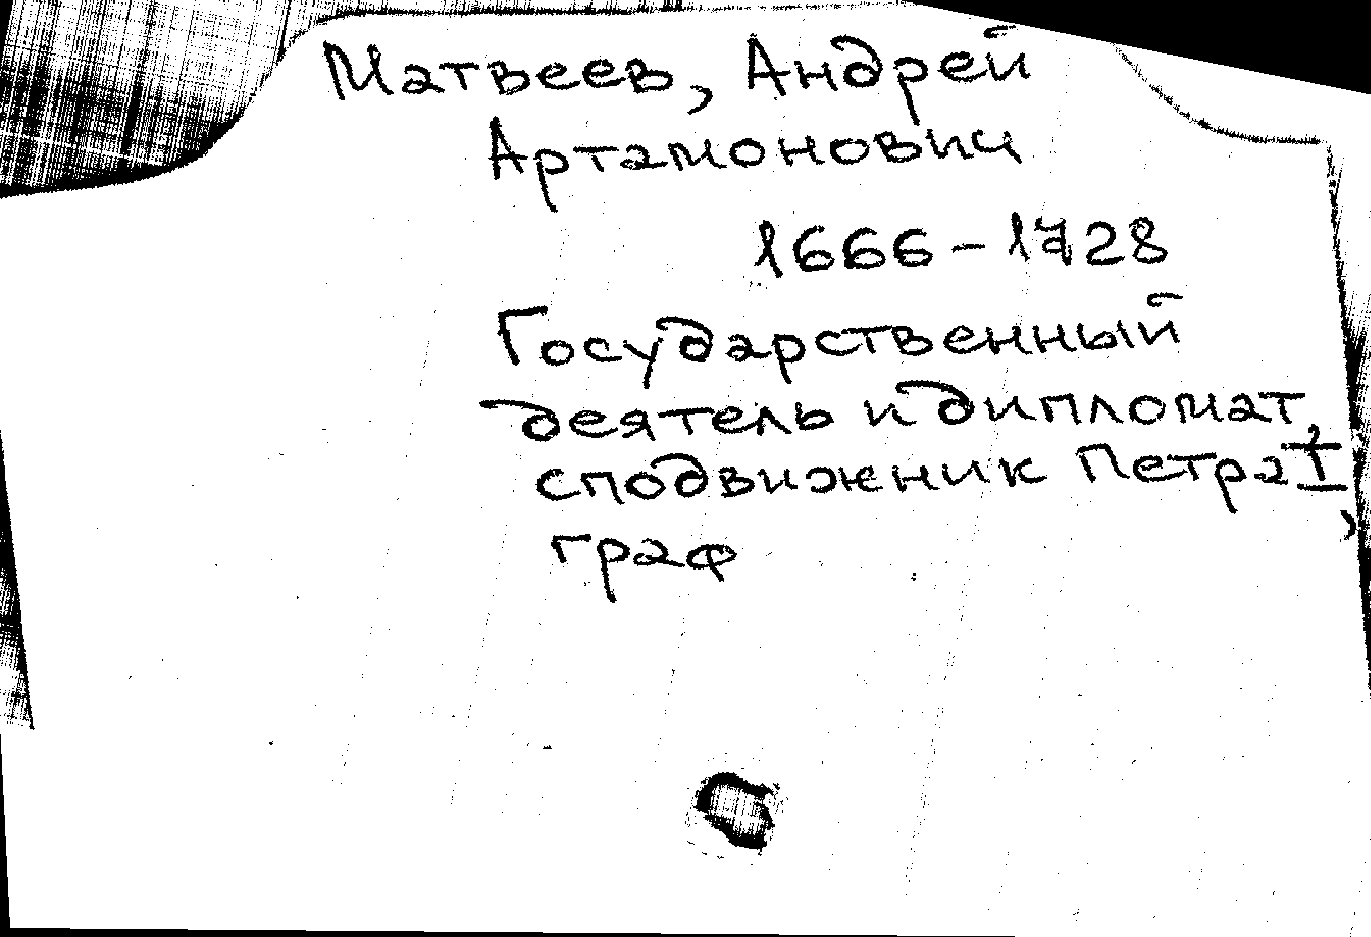 Матвеев, Андрей
Артамонович
1666-1728
Государственный
деятель и дипломат,
сподвижник Петра I,
граф